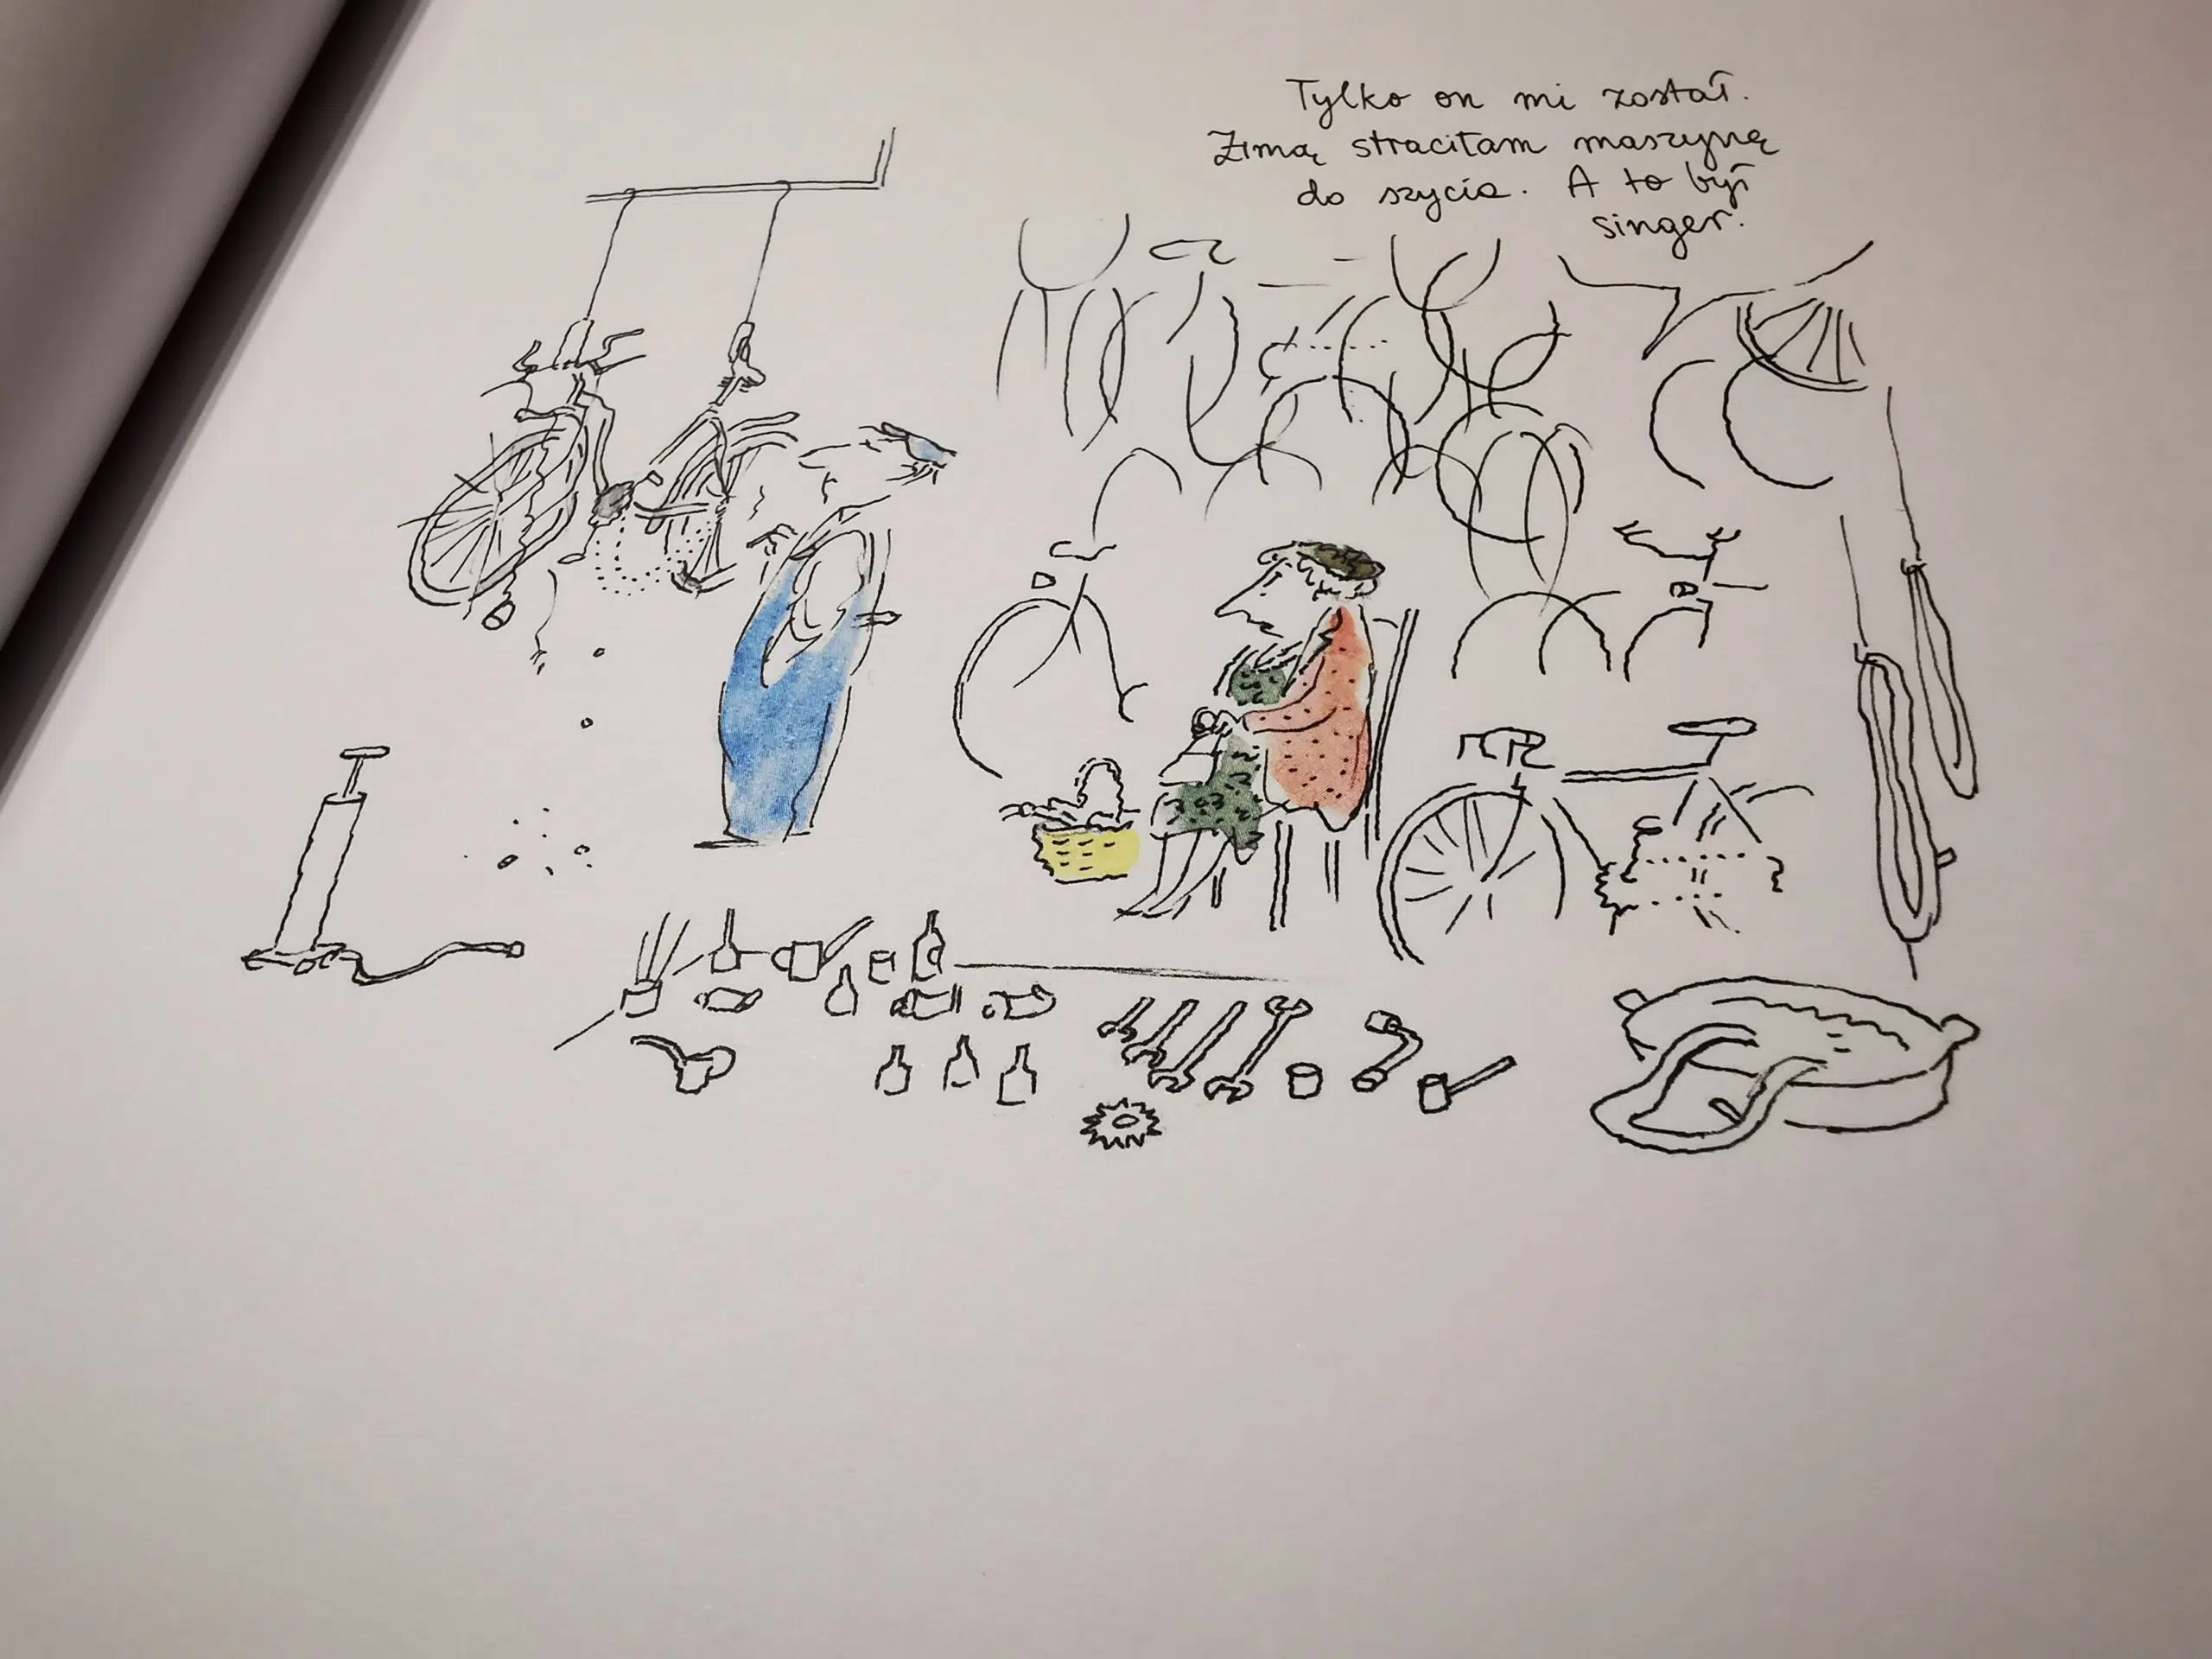 Tylko on mi został.
Zimą straciłam maszynę
do szycia. A to był
singer.